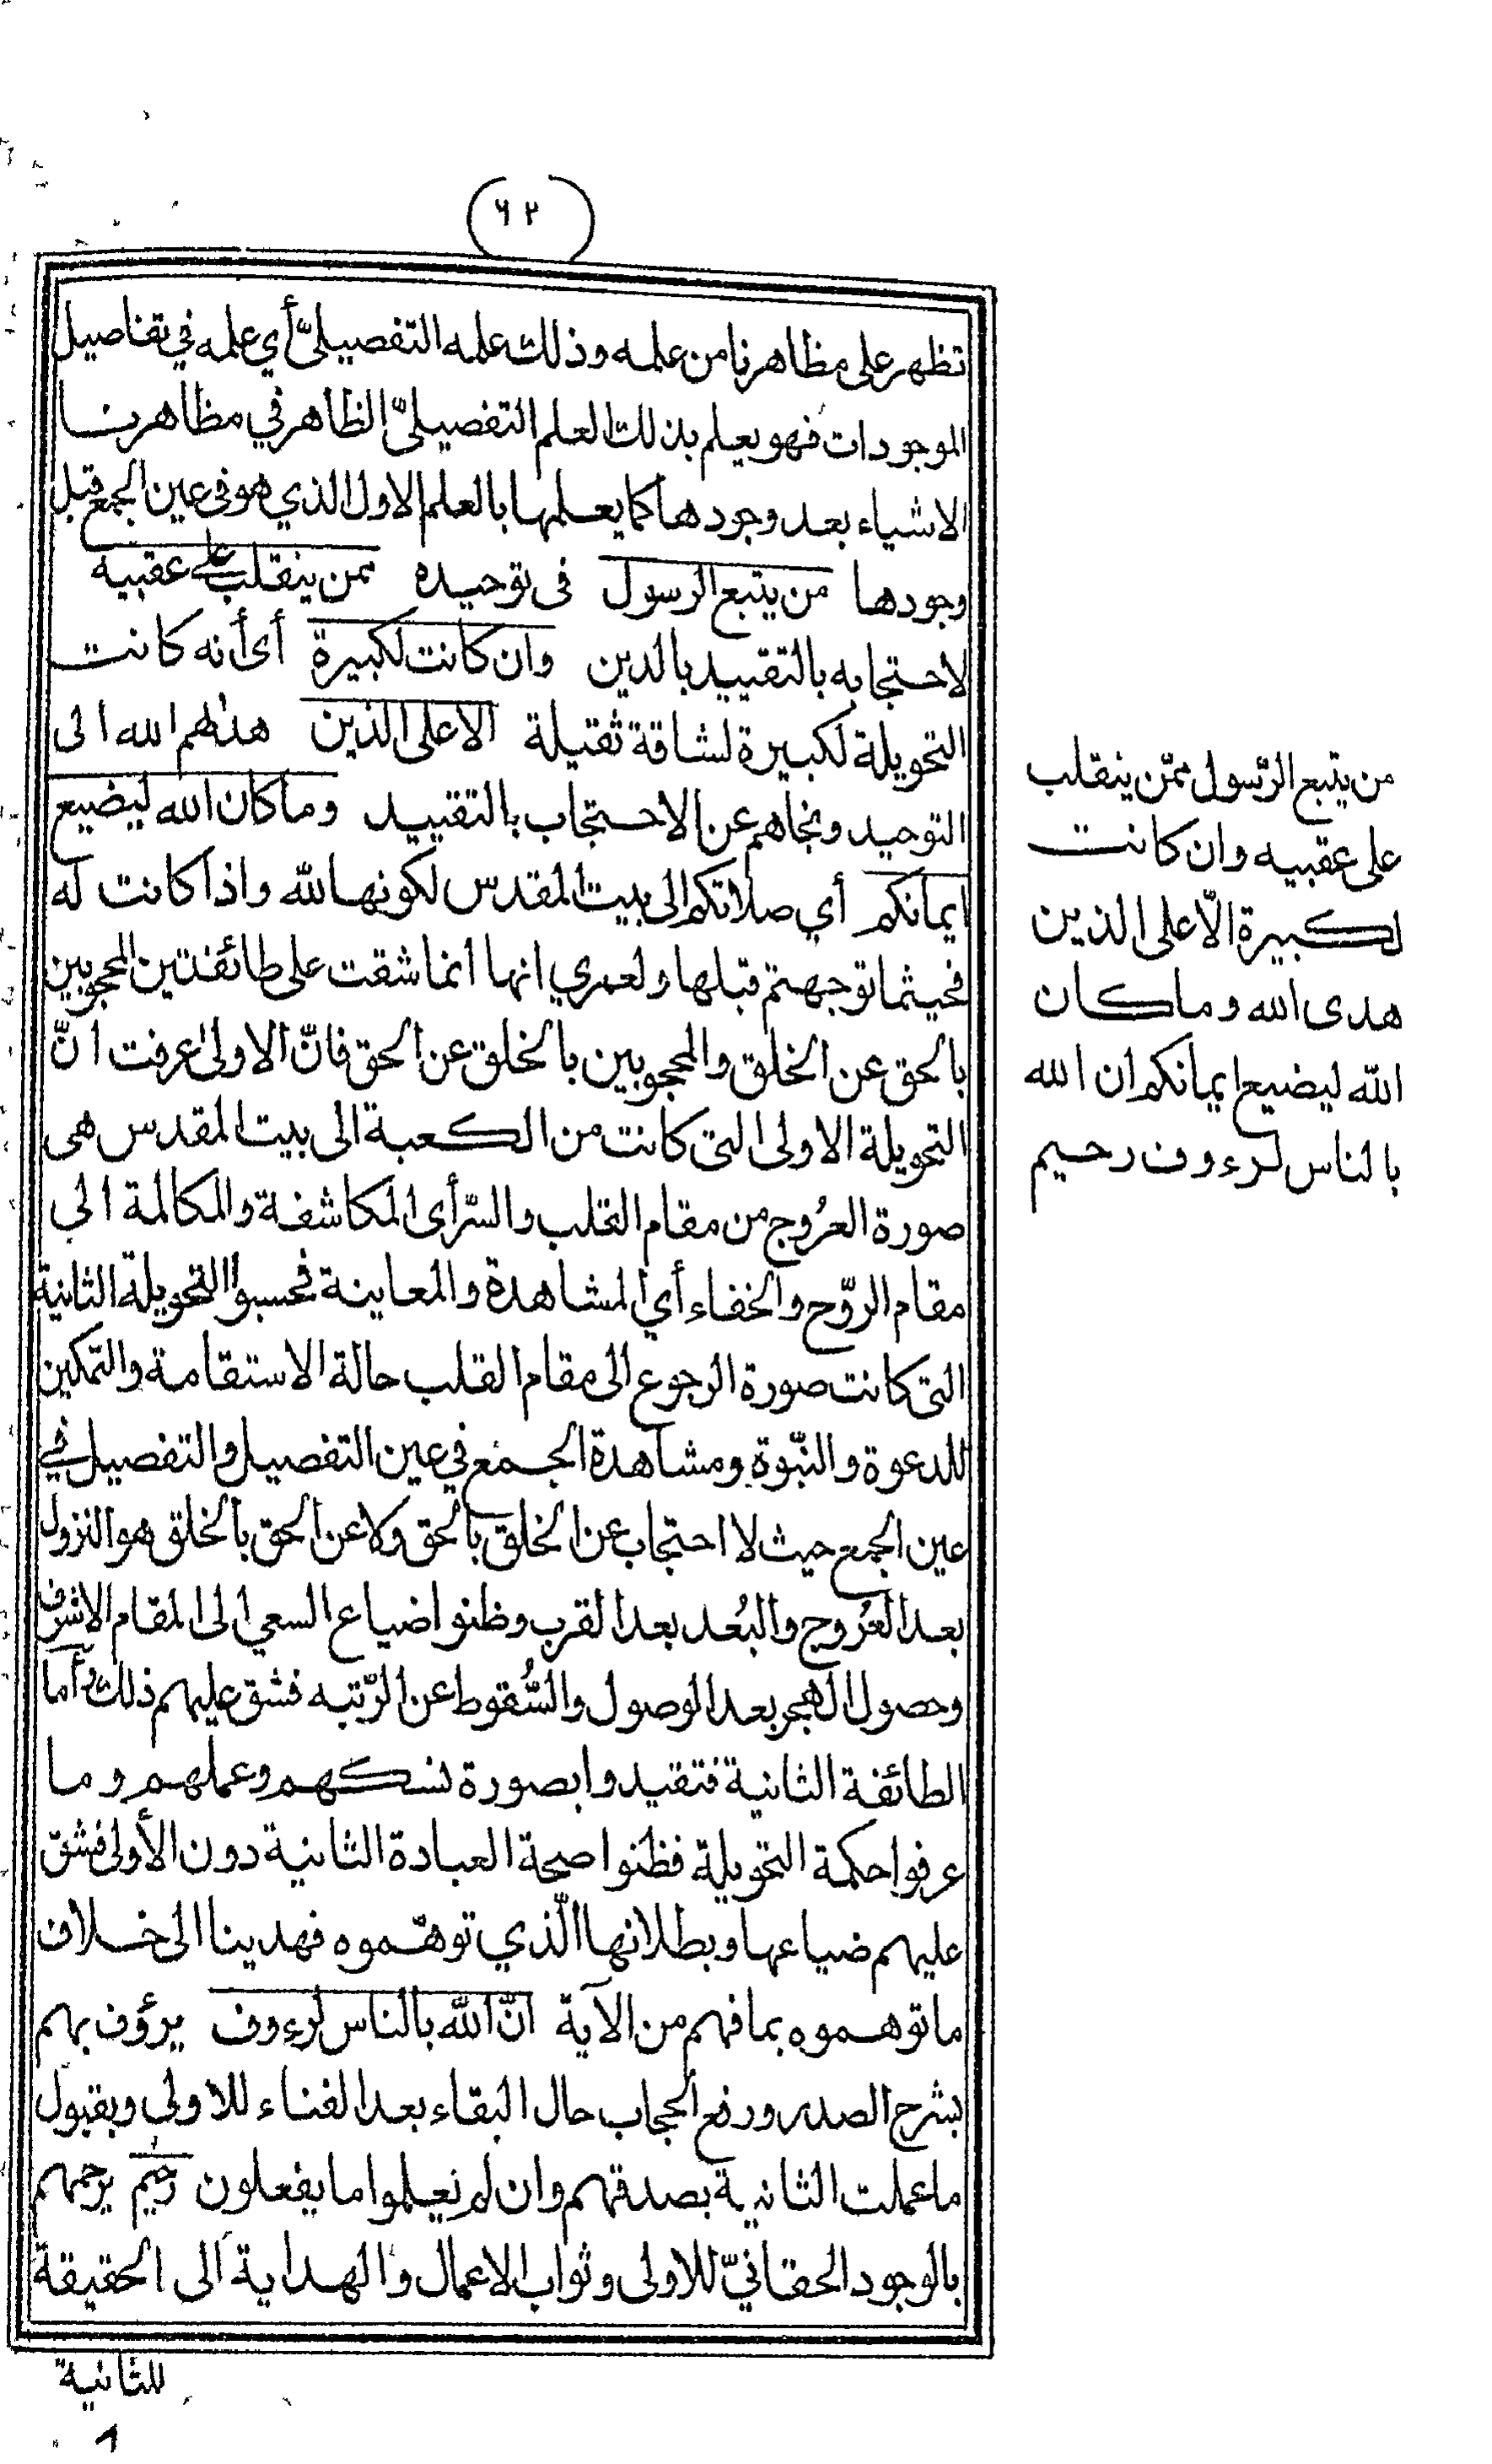 (٦٢)
تظهر على مظاهرنا من علمه وذلك علمه التفصيلىّ أي علمه في تفاصيل
الموجودات فهو يعلم بذلك العلم التفصيلىّ الظاهر في مظاهرنا
الاشياء بعد وجودها كما يعلمها بالعلم الاول الذي هو فى عين الجمع قبل
وجودها من يتبع الرسول فى توحيده ممن ينقلب على عقبيه
لاحتجابه بالتقييد بالدين وان كانت لكبيرة أى أنه كانت
التحويلة لكبيرة لشاقة ثقيلة الا على الذين هداهم الله الى
التوحيد ونجاهم عن الاحتجاب بالتقييد وما كان الله ليضيع
ايمانكم أي صلاتكم الى بيت المقدس لكونها لله واذا كانت له
فحيثما توجهتم قبلها ولعمري انها انما شقت على طائفتين المحجوبين
بالحق عن الخلق والمحجوبين بالخلق عن الحق فانّ الاولى عرفت انّ
التحويلة الاولى التى كانت من الكعبة الى بيت المقدس هى
صورة العُروج من مقام القلب والسّر أى المكاشفة والمكالمة الي
مقام الرّوح والخفاء أي المشاهدة والمعاينة فحسبوا التحويلة الثانية
التى كانت صورة الرجوع الى مقام القلب حالة الاستقامة والتمكين
للدعوة والنبّوة ومشاهدة الجمع في عين التفصيل والتفصيل في
عين الجمع حيث لا احتجاب عن الخلق بالحق ولا عن الحق بالخلق هو النزول
بعد العُروج والبُعد بعد القرب وظنوا ضياع السعي الى المقام الاشرف
وحصول الهجر بعد الوصول والسُّقوط عن الرّتبه فشق عليهم ذلك وأما
الطائفة الثانية فتقيدوا بصورة نسكهم وعملهم وما
عرفوا حكمة التحويلة فظنوا صحة العبادة الثانية دون الأولى فشق
عليهم ضياعها وبطلانها الّذي توهّموه فهدينا الى خلاف
ما توهموه بما فهم من الآية انّ الله بالناس لرءوف يرؤف بهم
بشرح الصدر ورفع الحجاب حال البقاء بعد الفناء للاولى وبقبول
ما عملت الثانية بصدقهم وان لم يعلموا ما يفعلون رحيم يرحمهم
بالوجود الحقانيّ للاولى وثواب الاعمال والهداية الى الحقيقة
للثانية
من يتبع الرّسول ممّن ينقلب
على عقبيه وان كانت
لكبيرة الّا على الذين
هدى الله وما كان
الله ليضيع ايمانكم ان الله
بالناس لرءوف رحيم